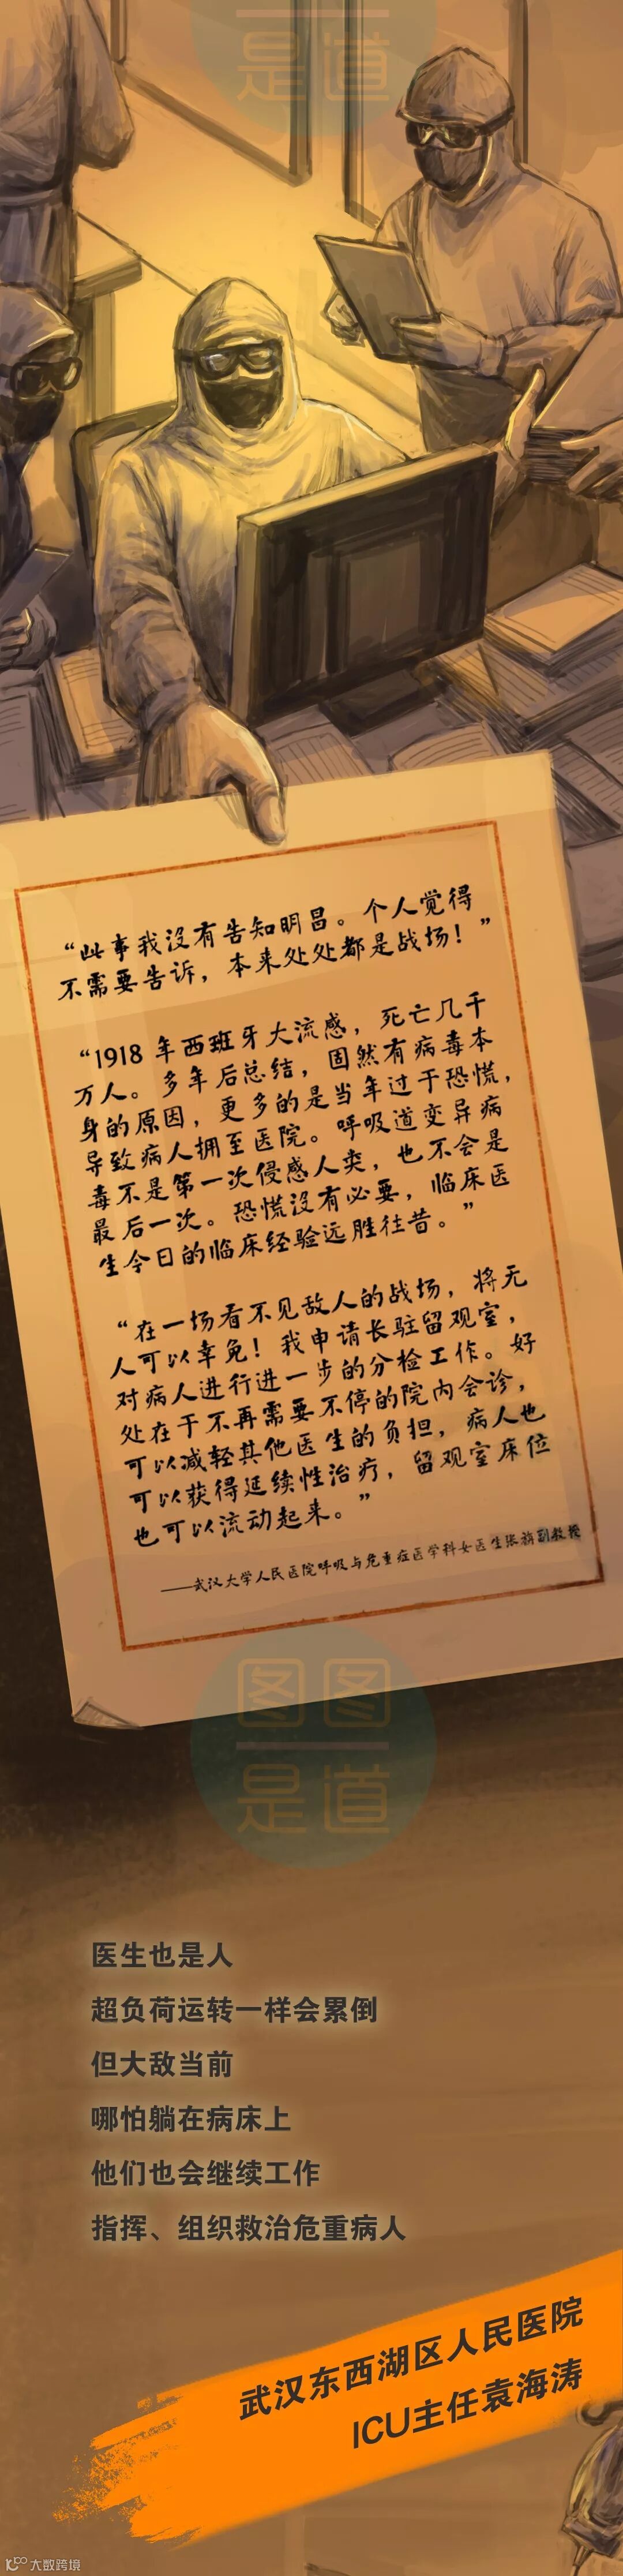 是道
“此事我没有告知明昌。个人觉得
不需要告诉，本来处处都是战场！”
“1918 年西班牙大流感，死亡几千
万人。多年后总结，固然有病毒本
身的原因，更多的是当年过于恐慌，
导致病人拥至医院。呼吸道变异病
毒不是第一次侵感人类，也不会是
最后一次。恐慌没有必要，临床医
生今日的临床经验远胜往昔。”
“在一场看不见敌人的战场，将无
人可以幸免！我申请长驻留观室，
对病人进行进一步的分检工作。好
处在于不再需要不停的院内会诊，
可以减轻其他医生的负担，病人也
可以获得延续性治疗，留观室床位
也可以流动起来。”
——武汉大学人民医院呼吸与危重症医学科女医生张旃副教授
图图
是道
医生也是人
超负荷运转一样会累倒
但大敌当前
哪怕躺在病床上
他们也会继续工作
指挥、组织救治危重病人
武汉东西湖区人民医院
ICU主任袁海涛
大数跨境